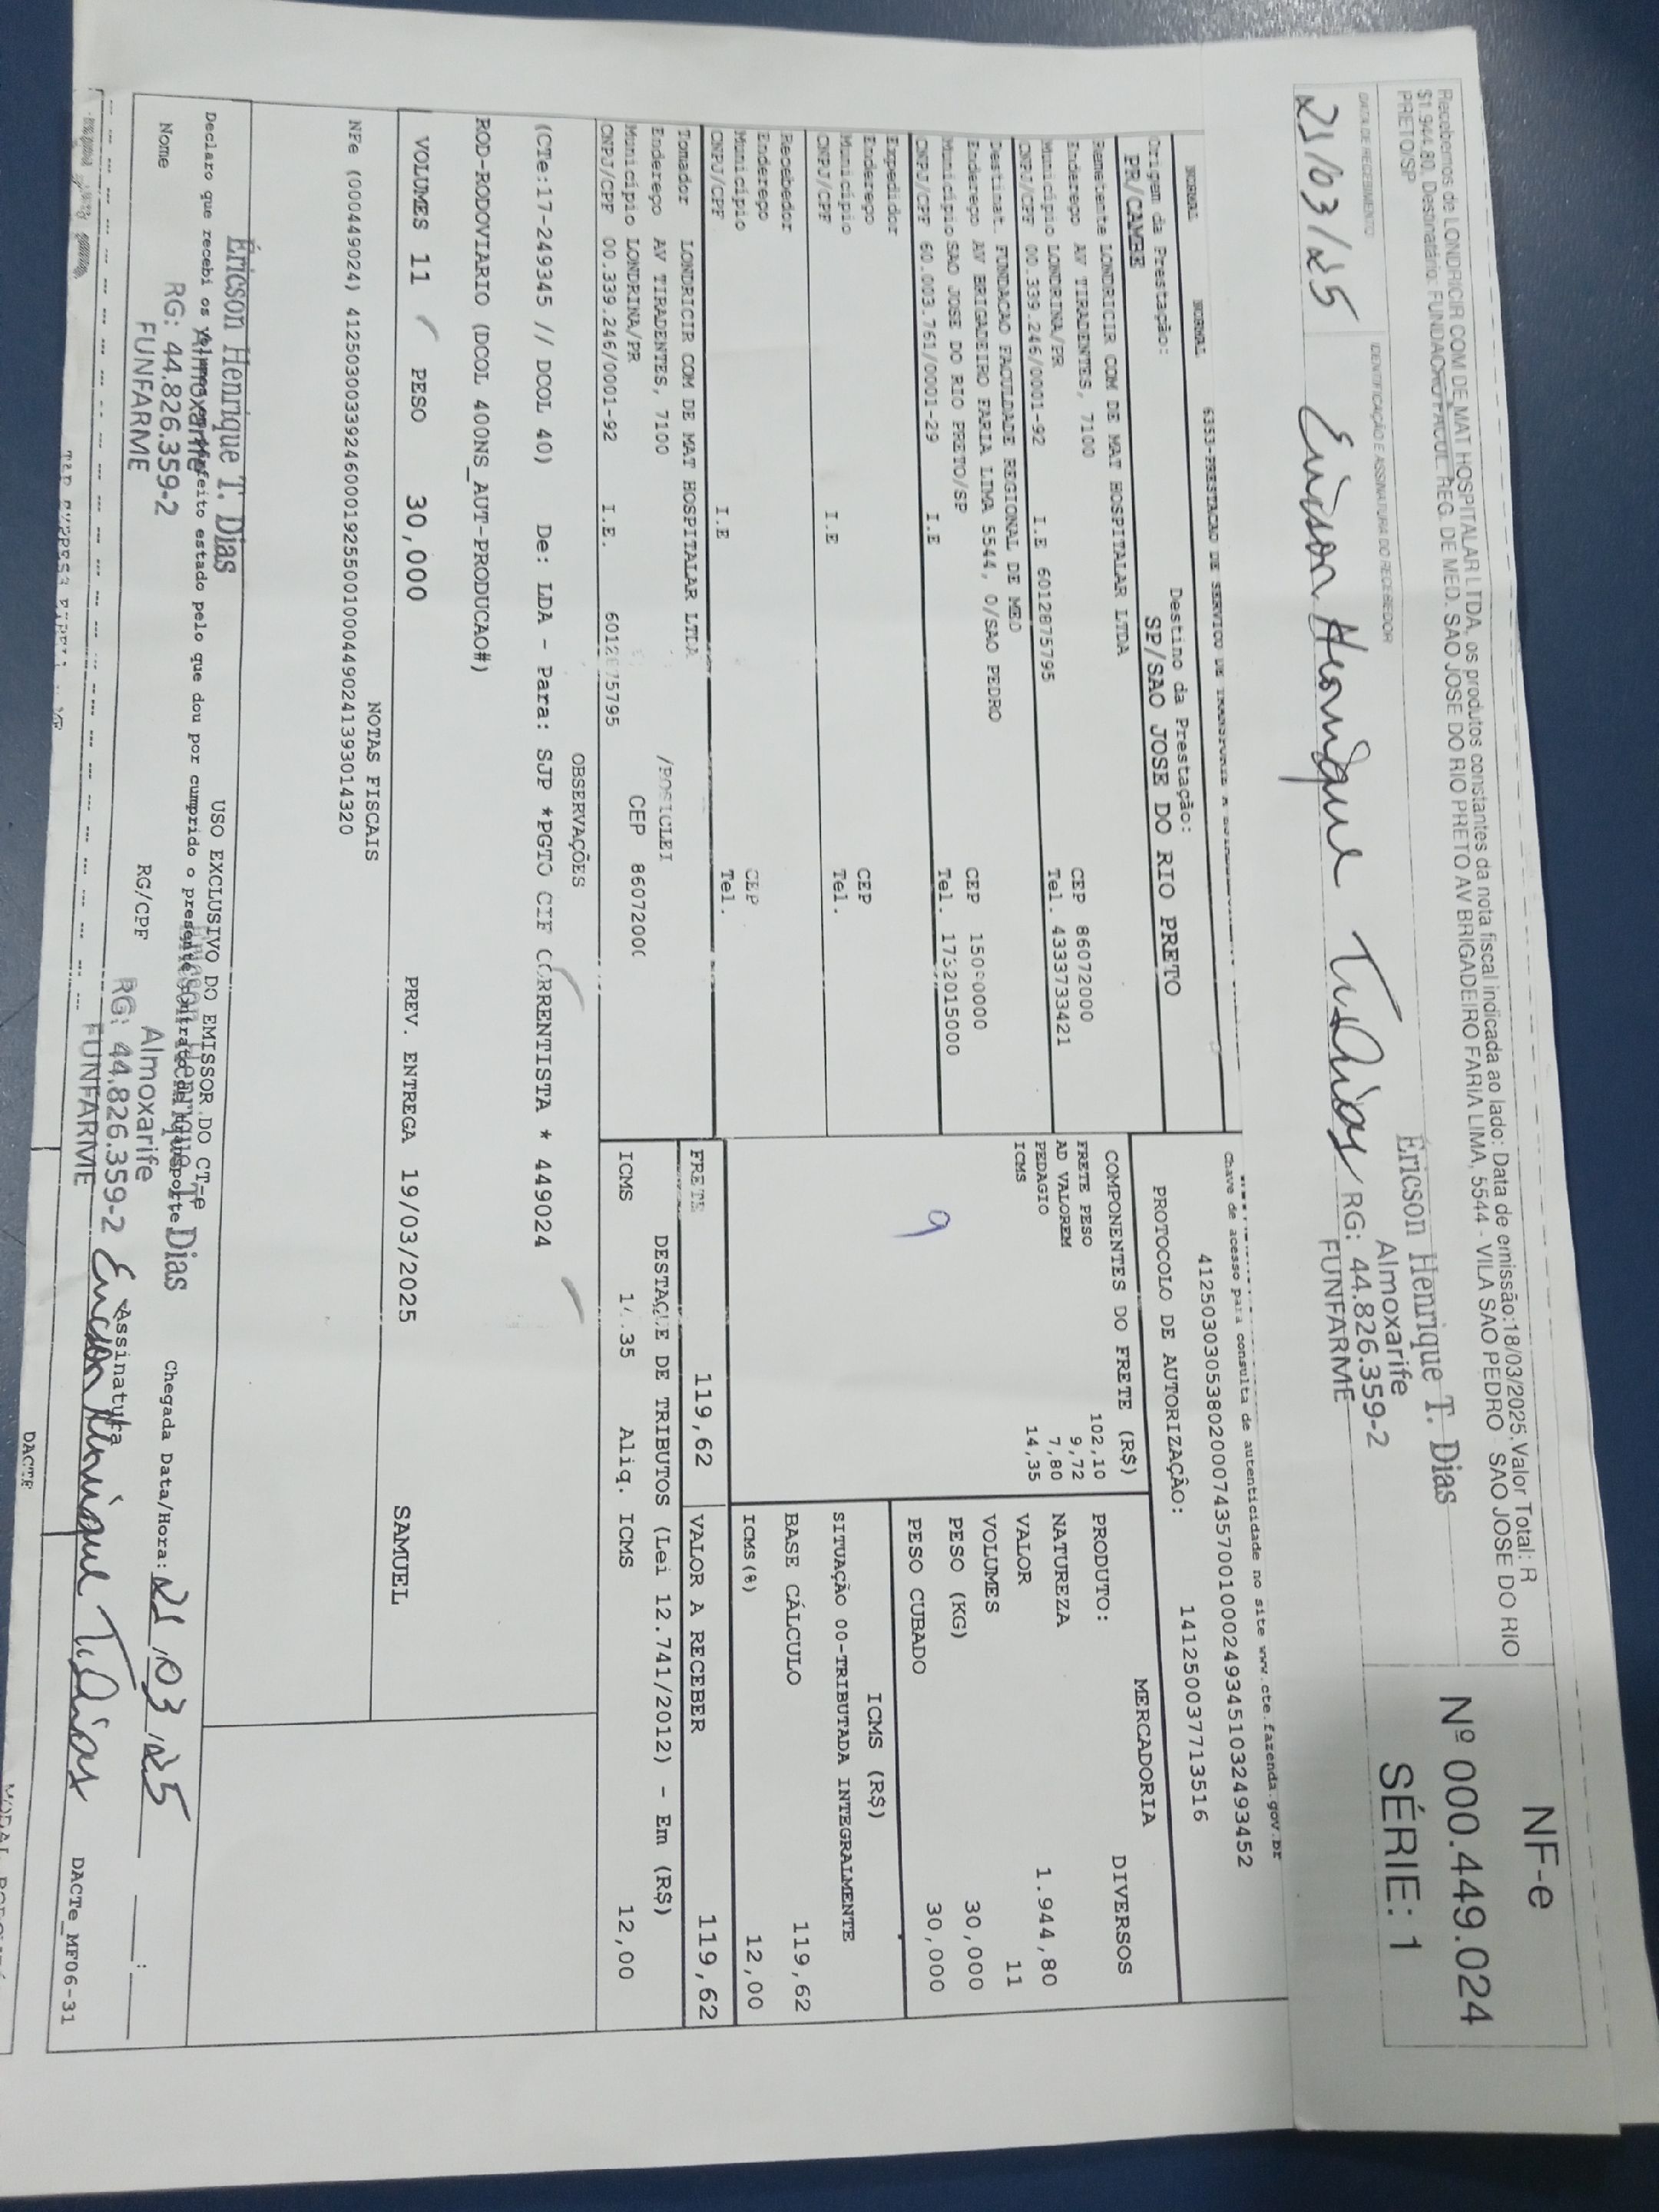 Recebemos de LONDRICIR COM DE MAT HOSPITALAR LTDA, os produtos constantes da nota fiscal indicada ao lado: Data de emissão:18/03/2025, Valor Total: R
$1.944,80, Destinatário: FUNDACAO FACUL. REG. DE MED. SAO JOSE DO RIO PRETO AV BRIGADEIRO FARIA LIMA, 5544 - VILA SAO PEDRO SAO JOSE DO RIO
PRETO/SP
DATA DE RECEBIMENTO
IDENTIFICAÇÃO E ASSINATURA DO RECEBEDOR
21/03/25 Ericson Henrique T. Dias
Éricson Henrique T. Dias
Almoxarife
RG: 44.826.359-2
FUNFARME
NF-e
Nº 000.449.024
SÉRIE: 1
NORMAL NORMAL 6353-PRESTACAO DE SERVICO DE TRANSPORTE A
Chave de acesso para consulta de autenticidade no site www.cte.fazenda.gov.br
41250303053802000743570010002493451032493452
Origem da Prestação: Destino da Prestação:
PR/CAMBE SP/SAO JOSE DO RIO PRETO
PROTOCOLO DE AUTORIZAÇÃO: 141250037713516
Remetente LONDRICIR COM DE MAT HOSPITALAR LTDA
Endereço AV TIRADENTES, 7100 CEP 86072000
Município LONDRINA/PR Tel. 4333733421
CNPJ/CPF 00.339.246/0001-92 I.E 6012875795
Destinat. FUNDACAO FACULDADE REGIONAL DE MED
Endereço AV BRIGADEIRO FARIA LIMA 5544, 0/SAO PEDRO
Município SAO JOSE DO RIO PRETO/SP CEP
CNPJ/CPF 60.003.761/0001-29 I.E Tel. 1732015000
Expedidor
Endereço CEP
Município Tel.
CNPJ/CPF I.E
Recebedor
Endereço CEP
Município Tel.
CNPJ/CPF I.E
Tomador LONDRICIR COM DE MAT HOSPITALAR LTDA
Endereço AV TIRADENTES, 7100 /ROSICLEI
Município LONDRINA/PR CEP 86072000
CNPJ/CPF 00.339.246/0001-92 I.E. 6012875795
COMPONENTES DO FRETE (R$)
FRETE PESO 102,10
AD VALOREM 9,72
PEDAGIO 7,80
ICMS 14,35
9
MERCADORIA
PRODUTO: DIVERSOS
NATUREZA
VALOR 1.944,80
VOLUMES 11
PESO (KG) 30,000
PESO CUBADO 30,000
ICMS (R$)
SITUAÇÃO 00-TRIBUTADA INTEGRALMENTE
BASE CÁLCULO 119,62
ICMS(%) 12,00
FRETE 119,62 VALOR A RECEBER 119,62
DESTAQUE DE TRIBUTOS (Lei 12.741/2012) - Em (R$)
ICMS 14.35 Aliq. ICMS 12,00
OBSERVAÇÕES
(CTe:17-249345 // DCOL 40) De: LDA - Para: SJP *PGTO CIF CORRENTISTA * 449024
ROD-RODOVIARIO (DCOL 400NS_AUT-PRODUCAO#)
VOLUMES 11 PESO 30,000 PREV. ENTREGA 19/03/2025 SAMUEL
NOTAS FISCAIS
NFe (000449024) 41250300339246000192550010004490241393014320
USO EXCLUSIVO DO EMISSOR DO CT-e
Declaro que recebi os volumes em perfeito estado pelo que dou por cumprido o presente contrato de transporte
Éricson Henrique T. Dias
Almoxarife
RG: 44.826.359-2
FUNFARME
Nome RG/CPF Assinatura
Éricson Henrique T. Dias
Almoxarife
RG: 44.826.359-2
FUNFARME
Ericson Henrique T. Dias
Chegada Data/Hora: 21/03/25 :
DACTe_MF06-31
DACTE